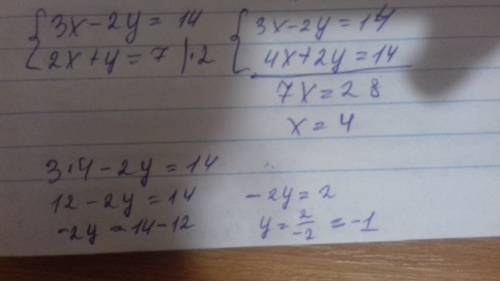 {3x-2y=14
{2x+y=7 |·2
{3x-2y=14
{4x+2y=14
7x=28
x=4
3·4-2y=14
12-2y=14
-2y=14-12
-2y=2
y=2/-2=-1